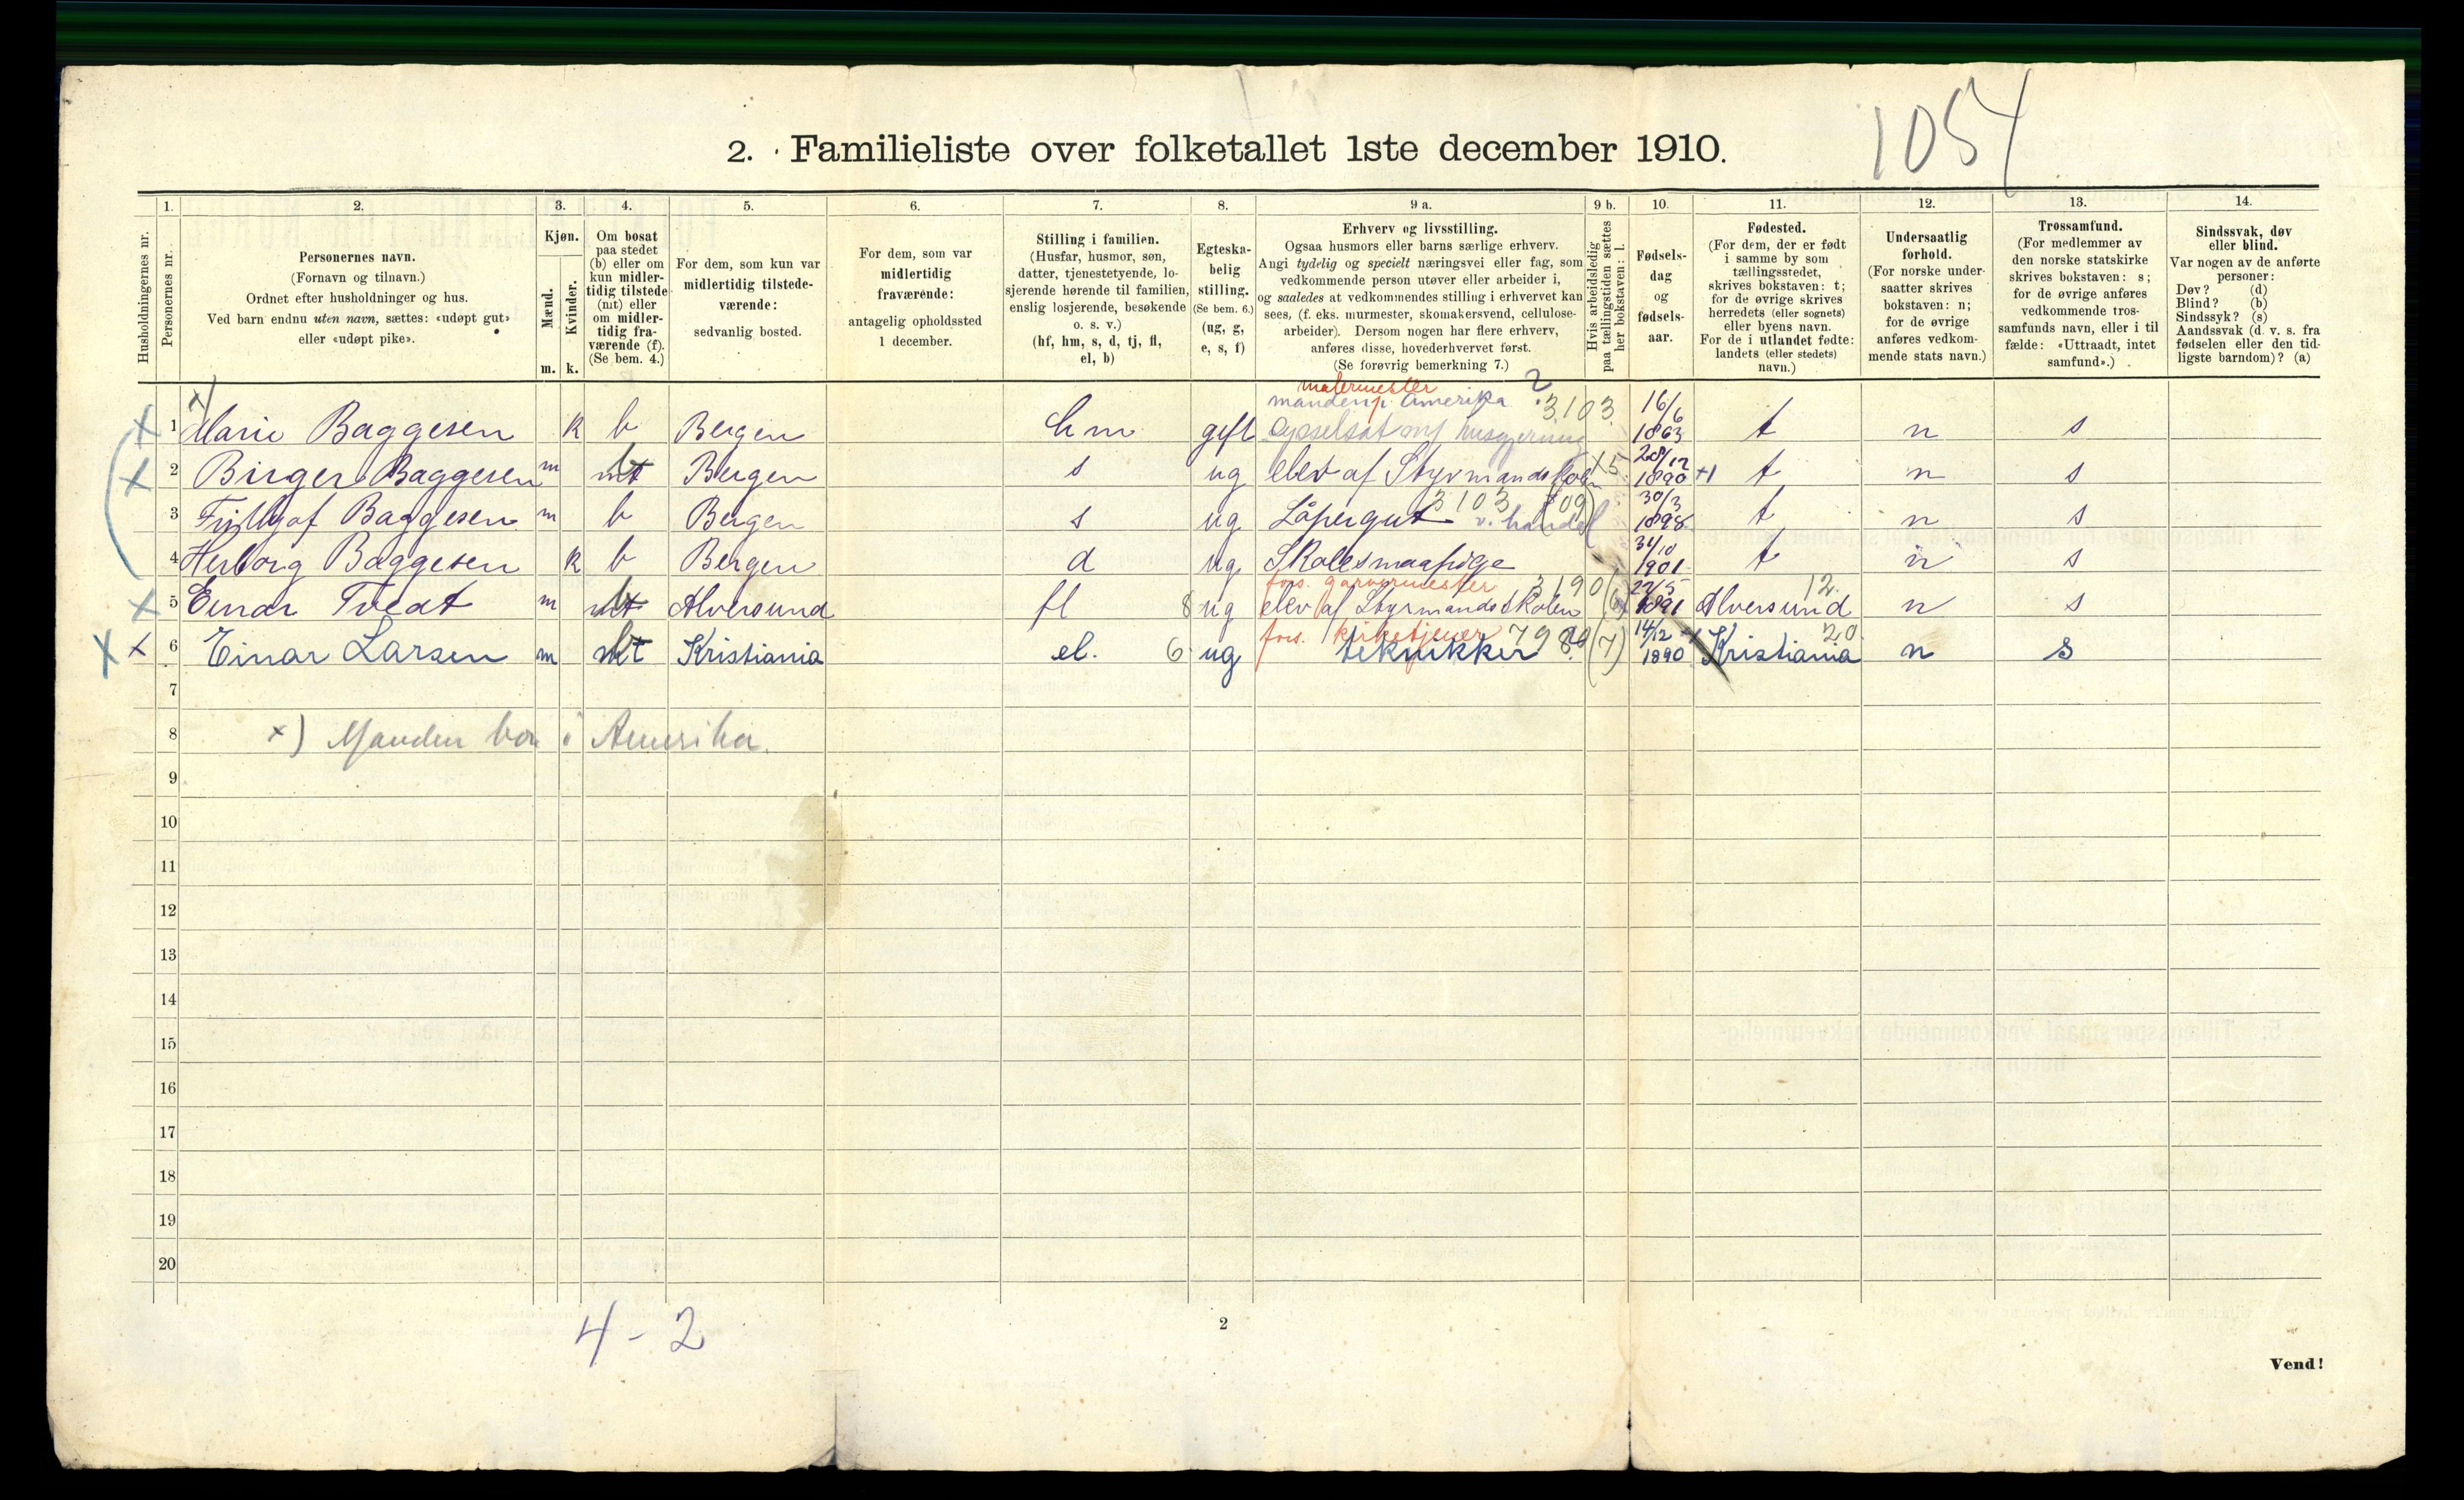 2. Familieliste over folketallet 1ste december 1910.
1054
Husholdningernes nr.
1. Personernes nr.
2. Personernes navn. (Fornavn og tilnavn.) Ordnet efter husholdninger og hus. Ved barn endnu uten navn, sættes: «udøpt gut» eller «udøpt pike».
3. Kjøn. Mænd. m. Kvinder. k.
4. Om bosat paa stedet (b) eller om kun midlertidig tilstede (mt) eller om midlertidig fraværende (f). (Se bem. 4.)
5. For dem, som kun var midlertidig tilstedeværende: sedvanlig bosted.
6. For dem, som var midlertidig fraværende: antagelig opholdssted 1 december.
7. Stilling i familien. (Husfar, husmor, søn, datter, tjenestetyende, losjerende hørende til familien, enslig losjerende, besøkende o. s. v.) (hf, hm, s, d, tj, fl, el, b)
8. Egteskabelig stilling. (Se bem. 6.) (ug, g, e, s, f)
9 a. Erhverv og livsstilling. Ogsaa husmors eller barns særlige erhverv. Angi tydelig og specielt næringsvei eller fag, som vedkommende person utøver eller arbeider i, og saaledes at vedkommendes stilling i erhvervet kan sees, (f. eks. murmester, skomakersvend, cellulosearbeider). Dersom nogen har flere erhverv, anføres disse, hovederhvervet først. (Se forøvrig bemerkning 7.)
9 b. Hvis arbeidsledig paa tællingstiden sættes her bokstaven: l.
10. Fødselsdag og fødselsaar.
11. Fødested. (For dem, der er født i samme by som tællingsstedet, skrives bokstaven: t; for de øvrige skrives herredets (eller sognets) eller byens navn. For de i utlandet fødte: landets (eller stedets) navn.)
12. Undersaatlig forhold. (For norske undersaatter skrives bokstaven: n; for de øvrige anføres vedkommende stats navn.)
13. Trossamfund. (For medlemmer av den norske statskirke skrives bokstaven: s; for de øvrige anføres vedkommende trossamfunds navn, eller i tilfælde: «Uttraadt, intet samfund».)
14. Sindssvak, døv eller blind. Var nogen av de anførte personer: Døv? (d) Blind? (b) Sindssyk? (s) Aandssvak (d. v. s. fra fødselen eller den tidligste barndom)? (a)
malermester ?
manden i Amerika 3103
x x) 1 Marie Baggesen k b Bergen hm gift sysselsat m/ husgjerning 16/6 1863 t n s
x 2 Birger Baggesen m mt b Bergen s ug elev af Styrmandsskolen x5 28/12 1890 +1 t n s
3103 (09)
3 Fritjhof Baggesen m b Bergen s ug Låpergut v. handel 30/3 1898 t n s
4 Herborg Baggesen k b Bergen d ug Skolesmaapige 31/10 1901 t n s
fors. garvermester 3190 (6) 12.
x 5 Einar Tvedt m mt b Alversund fl 8 ug elev af Styrmandsskolen 22/5 1891 Alversund n s
fors. kirketjener 79 20.
x x 6 Einar Larsen m mt b Kristiania el. 6 ug teknikker (7) 14/12 1890 Kristiania n s
7
8 x) Manden bor i Amerika.
9
10
11
12
13
14
15
16
17
18
19
20
4 - 2
2
Vend!